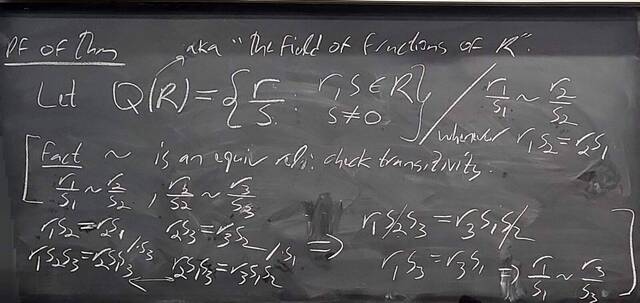 Pf of Thm
aka "the field of fractions of R".
Let Q(R) = { r/s : r, s ∈ R, s ≠ 0 } / r₁/s₁ ~ r₂/s₂ whenever r₁s₂ = r₂s₁
[Fact ~ is an equiv reln: check transitivity.
r₁/s₁ ~ r₂/s₂ , r₂/s₂ ~ r₃/s₃
r₁s₂ = r₂s₁ r₂s₃ = r₃s₂ ⇒ r₁s₂s₃ = r₃s₁s₂
r₁s₂s₃ = r₂s₁s₃ /·s₃ ↔ r₂s₁s₃ = r₃s₁s₂ /·s₁ r₁s₃ = r₃s₁ ⇒ r₁/s₁ ~ r₃/s₃ ]